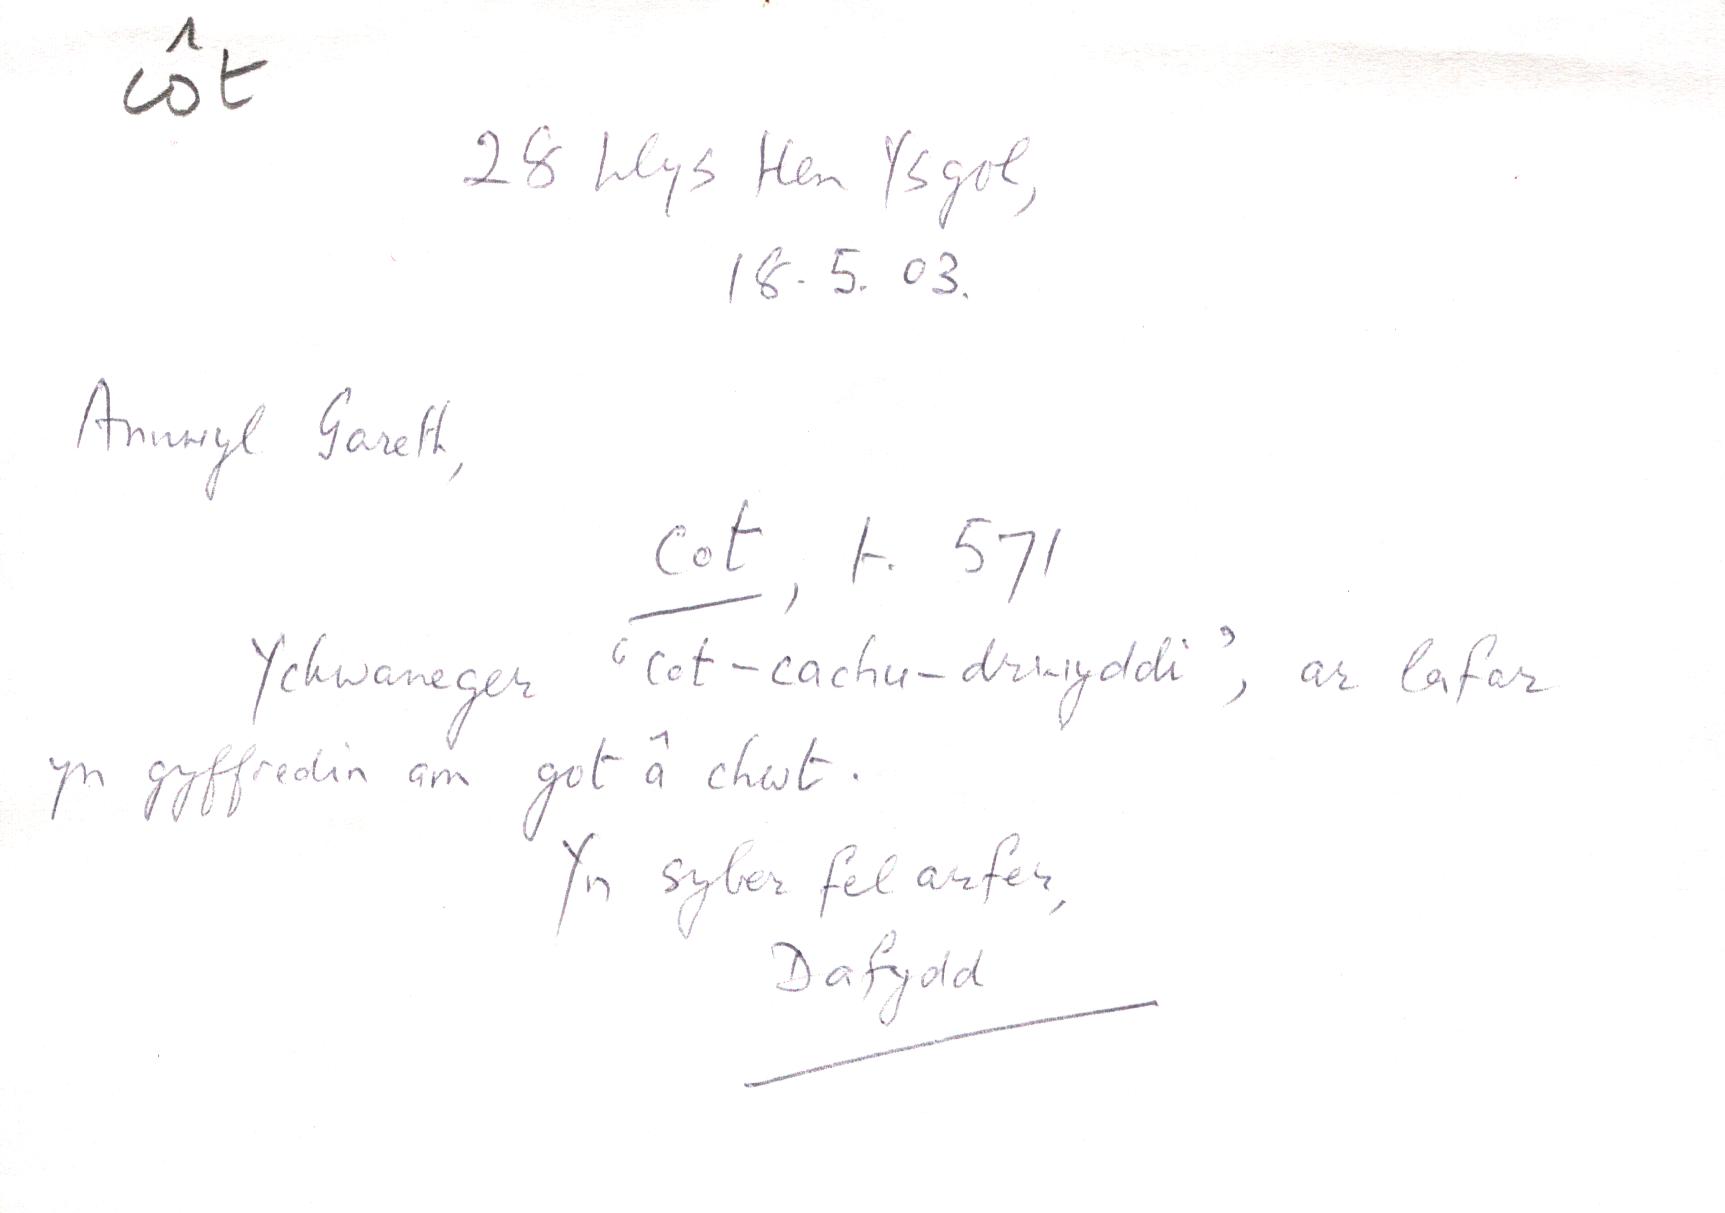 côt
28 Llys Hen Ysgol,
18.5.03.
Annwyl Gareth,
Cot, t. 571
Ychwaneger "cot-cachu-drwyddi", ar lafar
yn gyffredin am got â chwt.
Yn syber fel arfer,
Dafydd